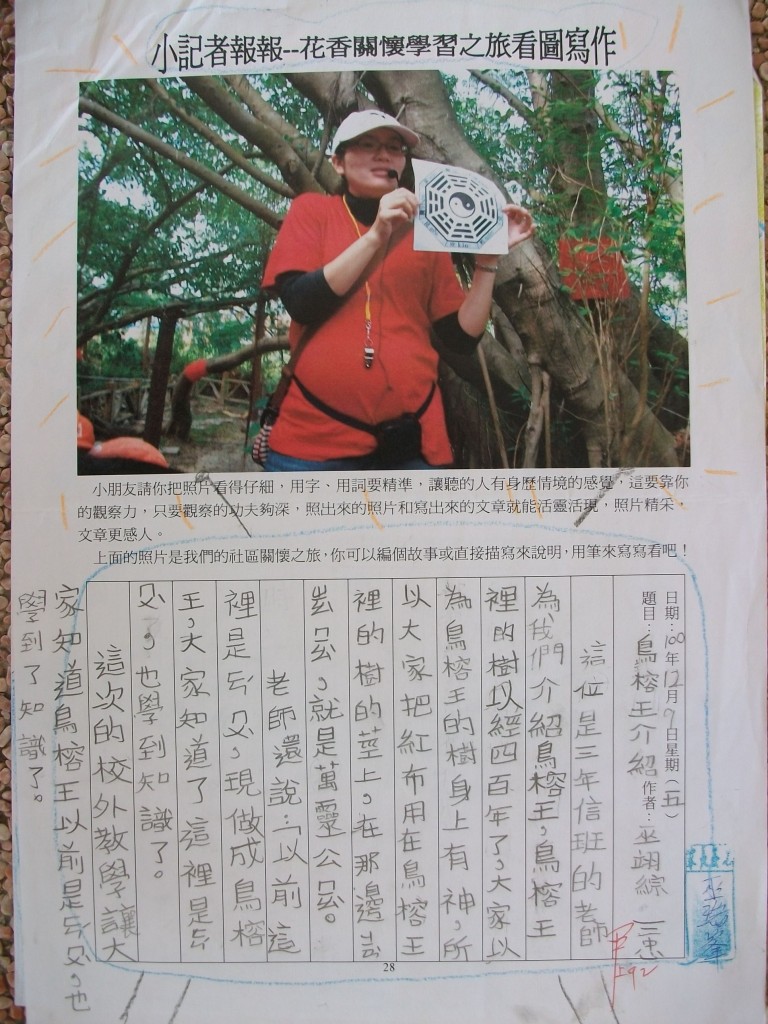 小記者報報--花香關懷學習之旅看圖寫作
小朋友請你把照片看得仔細，用字、用詞要精準，讓聽的人有身歷情境的感覺，這要靠你
的觀察力，只要觀察的功夫夠深，照出來的照片和寫出來的文章就能活靈活現，照片精采，
文章更感人。
上面的照片是我們的社區關懷之旅，你可以編個故事或直接描寫來說明，用筆來寫寫看吧！
日期：100年12月9日星期（五）
題目：鳥榕王介紹 作者：巫翊綜 三忠
這位是三年信班的老師
為我們介紹鳥榕王，鳥榕王
裡的樹以經四百年了，大家以
為鳥榕王的樹身上有神，所
以大家把紅布用在鳥榕王
裡的樹的莖上，在那邊ㄎㄢ
ㄍㄨㄥ，就是萬靈公ㄍㄨㄥ。
老師還說：「以前這
裡是ㄎㄠ，現做成鳥榕
王，大家知道了這裡是ㄎ
ㄠ，也學到知識了。
這次的校外教學讓大
家知道鳥榕王以前是ㄎㄠ，也
學到了知識了。
28